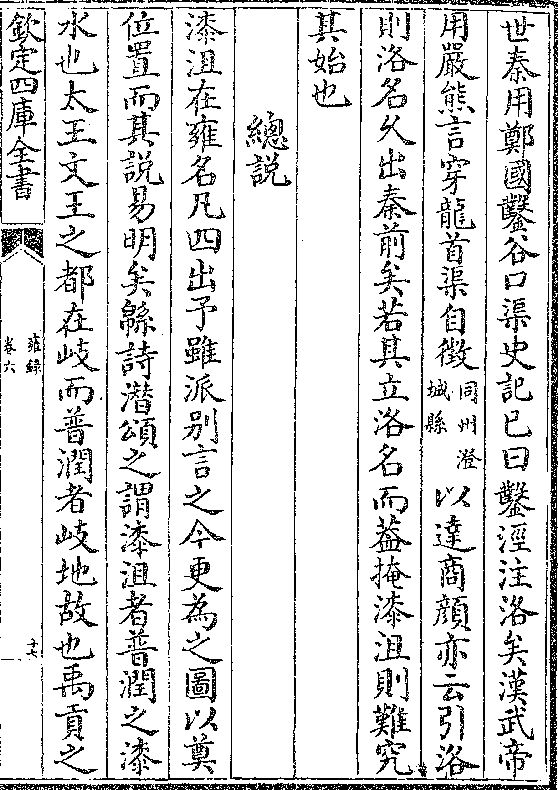 世秦用鄭國鑿谷口渠史記已曰鑿涇注洛矣漢武帝
用嚴熊言穿龍首渠自徵同州澄城縣以達商顔亦云引洛
則洛名久出秦前矣若其立洛名而葢掩漆沮則難究
其始也
總説
漆沮在雍名凡四出予雖派别言之今更為之圖以奠
位置而其説易明矣緜詩潛頌之謂漆沮者普潤之漆
水也太王文王之都在岐而普潤者岐地故也禹貢之
欽定四庫全書
雍錄
卷六
十六